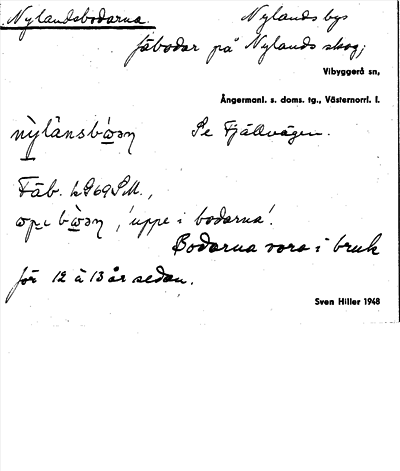 Nylandsbodarna. Nylands bys
fäbodar på Nylands skog;
Vibyggerå sn,
Ångermanl. s. doms. tg., Västernorrl. l.
Se Fjällvägen.
Fäb.
'uppe i bodarna'.
Bodarna voro i bruk
för 12 à 13 år sedan.
Sven Hiller 1948